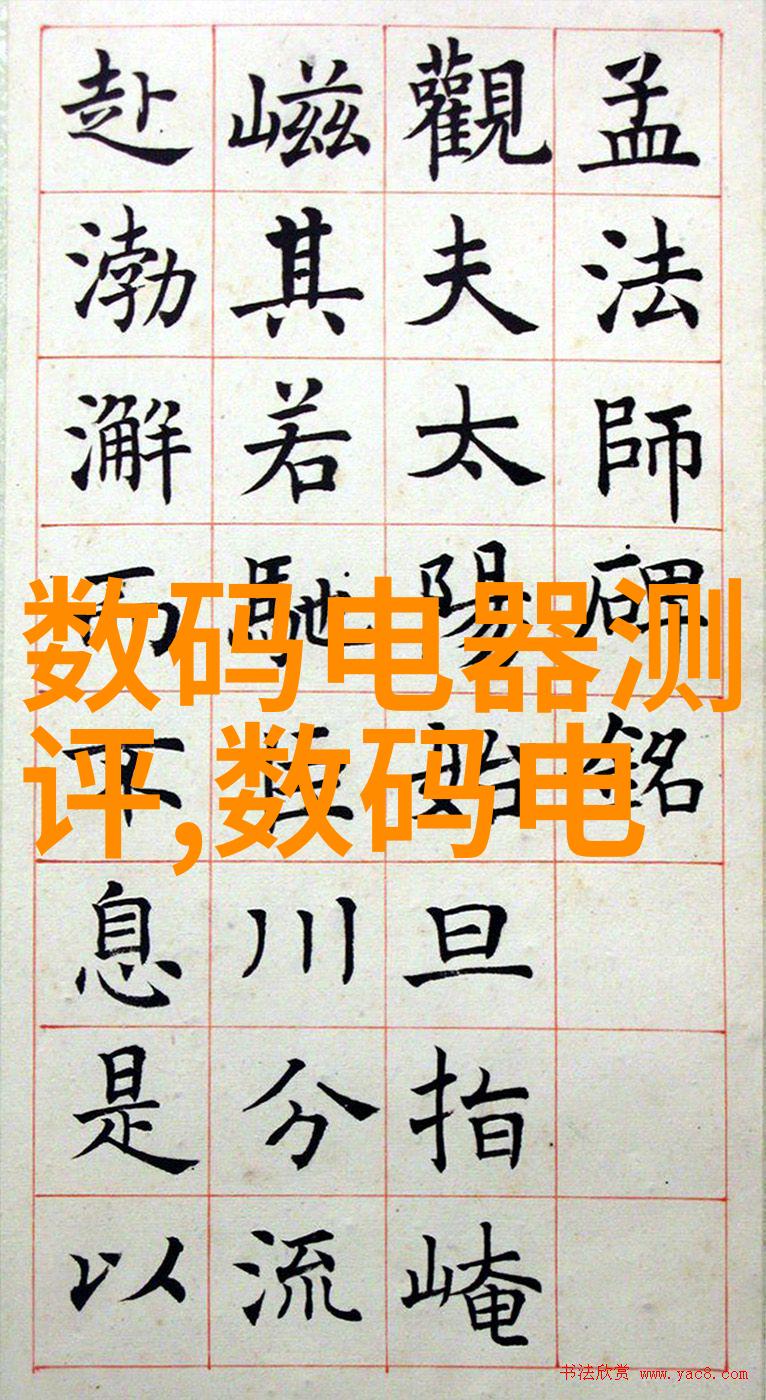 孟法師碑銘
觀夫太陽始旦指崦
嵫其若馳巨川分流
赴渤澥而不息是以
数码电器测
评,数码电
书法欣赏 www.yac8.com